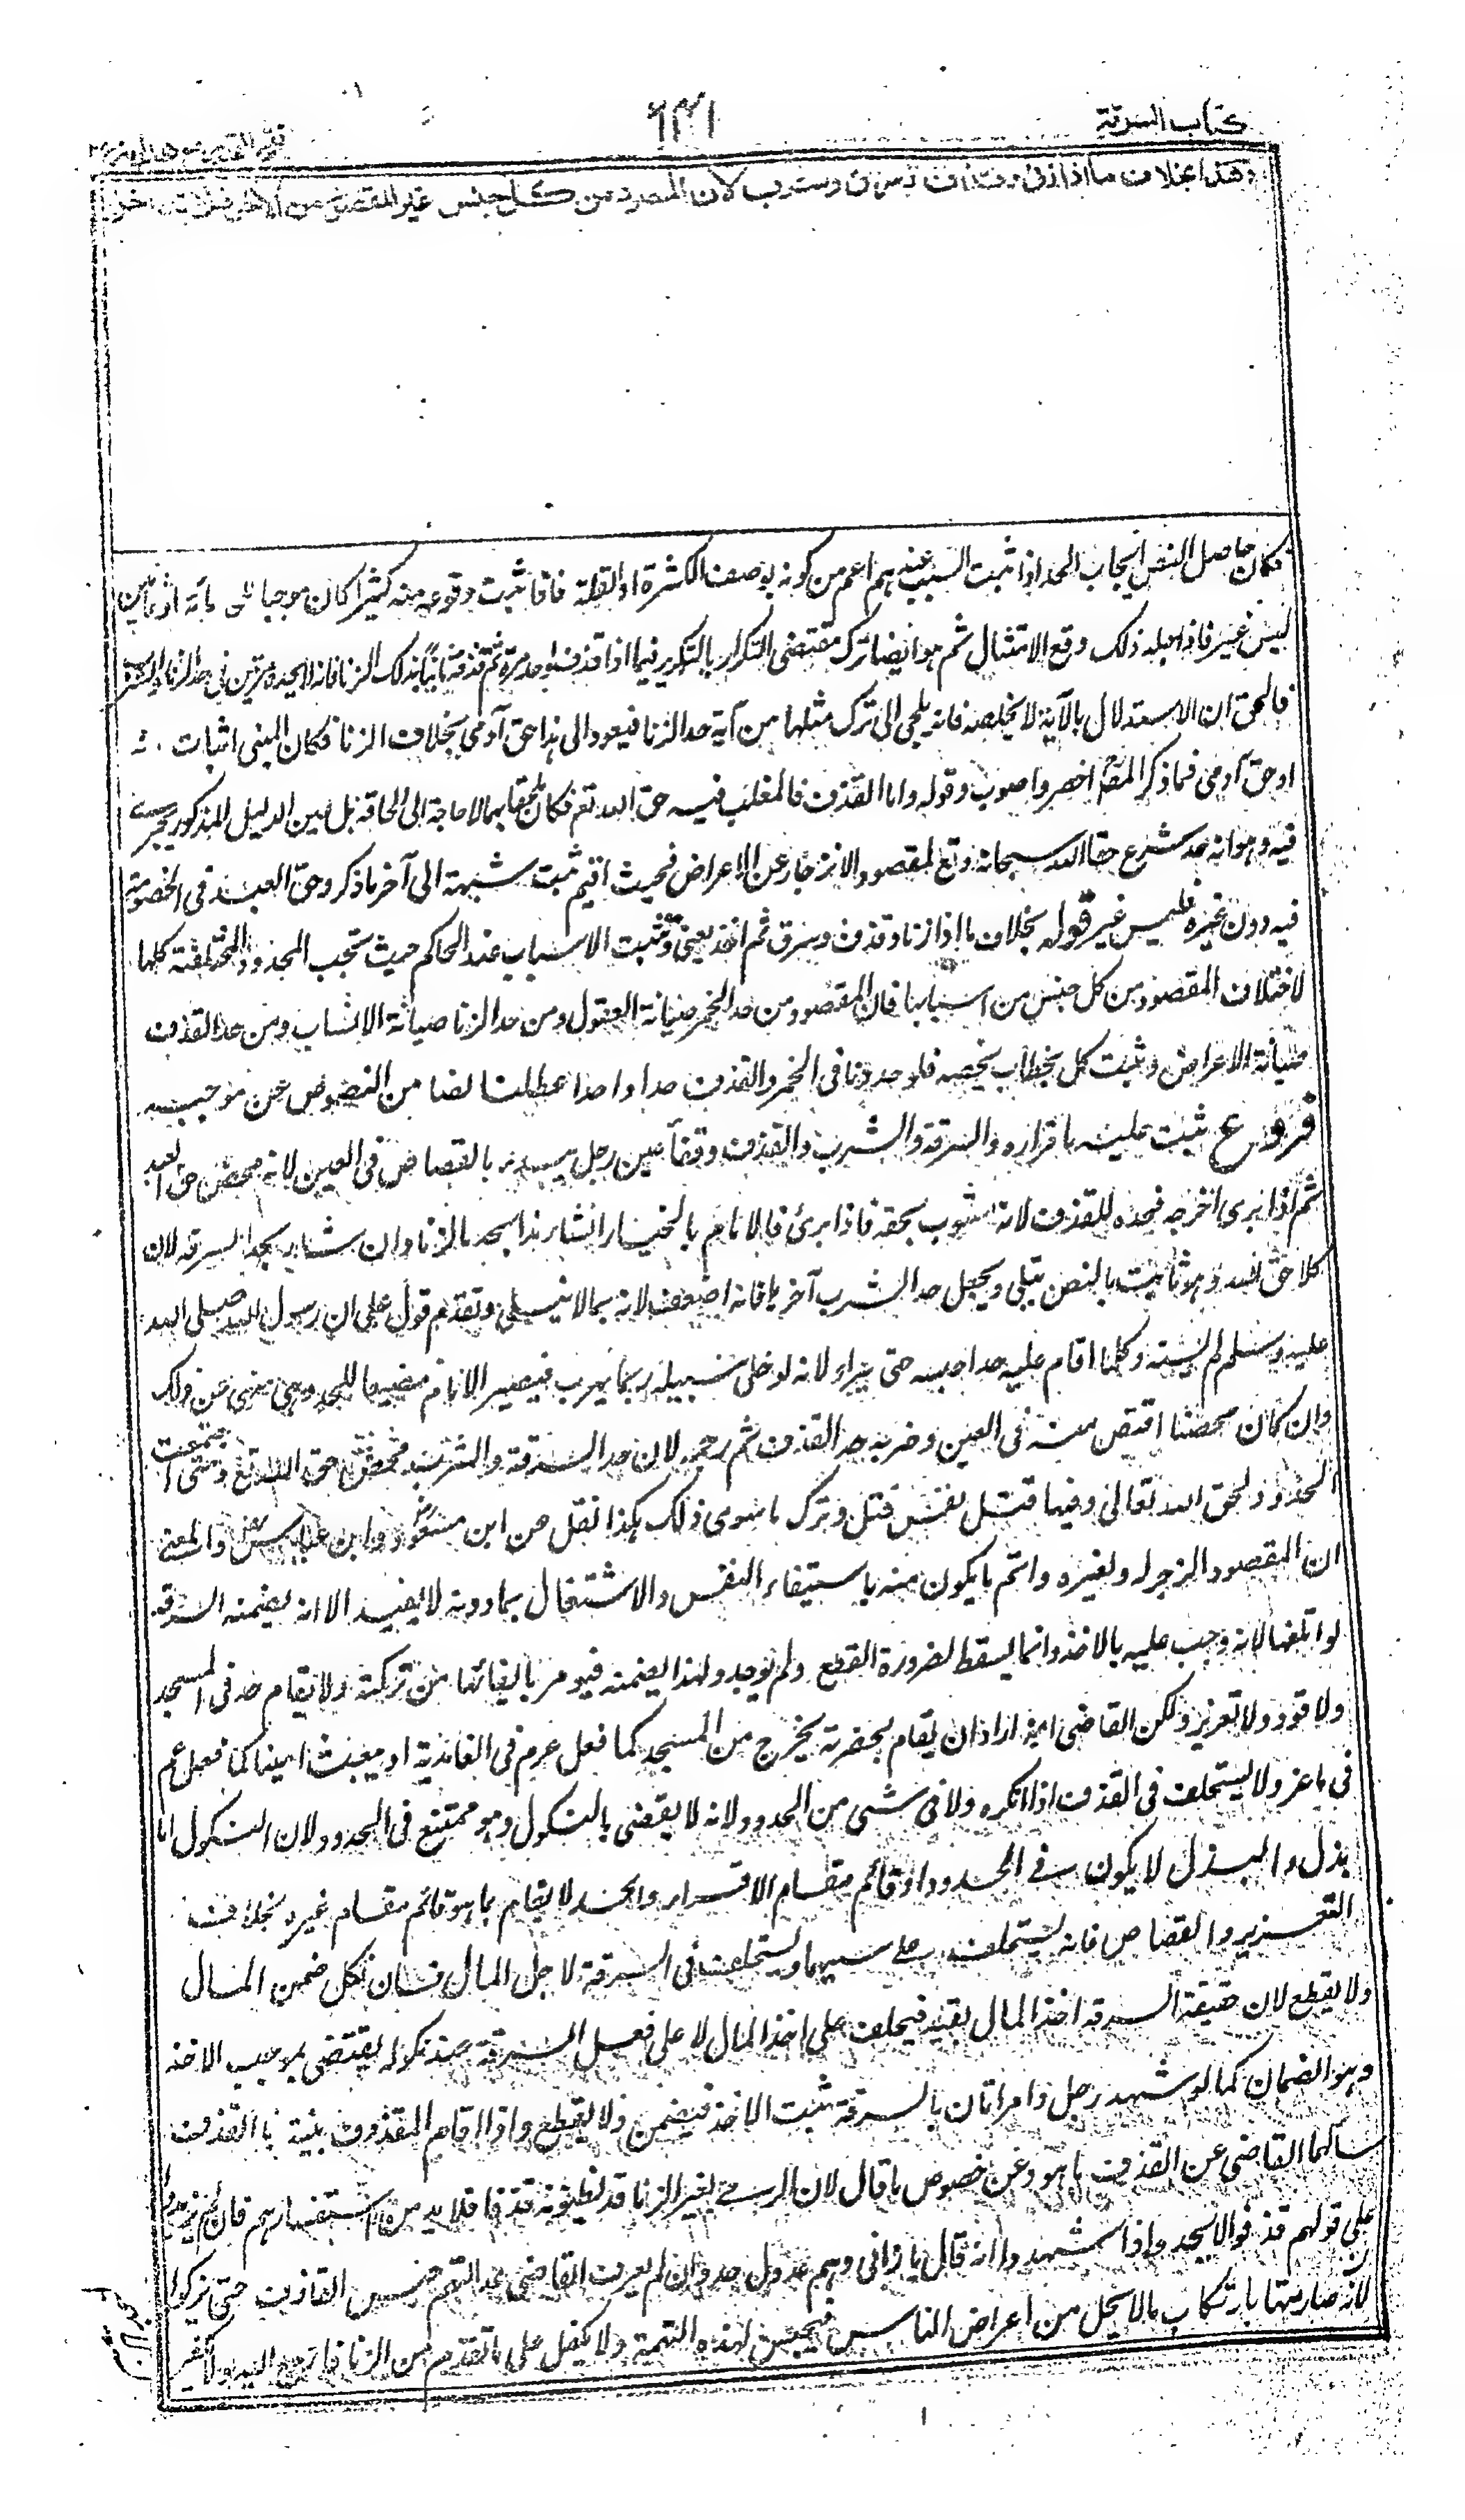 كتاب السرقة
وهذا بخلاف ما اذا زنى وقذف وسرق وشرب لان المقصود من كل جنس غير المقصود من الآخر فلا يتداخل
فكان حاصل النص ايجاب الحد اذا ثبت السبب عندهم اعم من كونه بوصف الكثرة او القلة فاذا ثبت وقوعه منه كثيرا كان موجبا للحد مائة او ثمانين
ليس غير فاذا جلد ذلك وقع الامتثال ثم هو ايضا ترك مقتضى التكرار بالتكرير فيما اذا قذف واحدا مرة ثم قذفه ثانيا بذلك الزنا فانه لا يحد مرتين
فالحق ان الاستدلال بالآية لا يخلصه فانه يلجى الى ترك مثلها من آية حد الزنا فيعود الى ان هذا حق آدمى بخلاف الزنا فكان المبنى اثبات
او حق آدمى فما ذكر المصنف اخصر واصوب وقوله واما القذف فالمغلب فيه حق الله تعم فكان ملحقا بهما لا حاجة الى الحاقه بل عين الدليل المذكور يجرى
فيه وهو انه حد شرع حقا لله سبحانه وتع لمقصود الانزجار عن الاعراض فحيث اقيم ثبت شبهة الى آخر ما ذكر وحق العبد فى الخصومة
فيه دون غيره فليس غير قوله بخلاف ما اذا زنا وقذف وسرق ثم اخذ يعنى وثبتت الاسباب عند الحاكم حيث تجب الحدود المختلفة كلها
لاختلاف المقصود من كل جنس من اسبابها فان المقصود من حد الخمر صيانة العقول ومن حد الزنا صيانة الانساب ومن حد القذف
صيانة الاعراض وثبت كل بخطاب يخصه فلو حددنا فى الخمر والقذف حدا واحدا عطلنا نصا من النصوص عن موجبه
فروع ثبت عليه باقراره والسرقة والشرب والقذف وفقأ عين رجل يبدء بالقصاص فى العين لانه محض حق العبد
ثم اذا برى اخرجه فيحده للقذف لانه مشوب بحقه فاذا برئ فالامام بالخيار ان شاء بدا بحد الزنا وان شاء بحد السرقة لان
كلا حق الله وهو ثابت بالنص يتلى ويجعل حد الشرب آخرها فانه اضعف لانه بما لا يتلى وتقدم قول على ان رسول الله صلى الله
عليه وسلم لم يسنه وكلما اقام عليه حدا حبسه حتى يبراء لانه لو خلى سبيله ربما يهرب فيصير الامام مضيعا للحد وهو منهى عن ذلك
وان كان محصنا اقتص منه فى العين وضربه حد القذف ثم رجمه لان حد السرقة والشرب محض حق الله تع ومتى اجتمعت
الحدود لحق الله تعالى وفيها قتل نفس قتل وترك ما سوى ذلك هكذا نقل عن ابن مسعود وابن عباس والمعنى
ان المقصود الزجر له ولغيره واتم ما يكون منه باستيفاء النفس والاشتغال بما دونه لا يفيد الا انه يضمنه السرقة
لو اتلفها لانه وجب عليه بالاخذ وانما يسقط لضرورة القطع ولم يوجد ولهذا يضمنه فيومر بايفائها من تركته ولا يقام حد فى المسجد
ولا قود ولا تعزير ولكن القاضى اذا اراد ان يقام بحضرته يخرج من المسجد كما فعل عم فى الغامدية او يبعث امينا كما فعل عم
فى ماعز ولا يستحلف فى القذف اذا انكره ولا فى شىء من الحدود لانه لا يقضى بالنكول وهو ممتنع فى الحدود لان النكول اما
بذل والبذل لا يكون فى الحدود او قائم مقام الاقرار والحد لا يقام بما هو قائم مقام غيره بخلاف
التعزير والقصاص فانه يستحلف على سببهما ويستحلف فى السرقة لاجل المال فان نكل ضمن المال
ولا يقطع لان حقيقة السرقة اخذ المال بقيد فيحلف على اخذ المال لا على فعل السرقة وعند نكوله يقتضى بموجب الاخذ
وهو الضمان كما لو شهد رجل وامراتان بالسرقة ثبت الاخذ فيضمن ولا يقطع واذا اقام المقذوف بينة بالقذف
سالهما القاضى عن القذف ما هو وعن خصوص ما قال لان الرمى بغير الزنا قد يظنونه قذفا فلا بد من استفسارهم فان لم يزيدوا
على قولهم قذف فوالا يحد واذا شهدوا انه قال يا زانى وهم عدول حد وان لم يعرف القاضى عدالتهم حبس القاذف حتى يزكوا
لانه صار متهما بارتكاب ما لا يحل من اعراض الناس فيحبس لهذه التهمة ولا يكفل على ما تقدم من الزنا فارجع اليه ولا كفيل